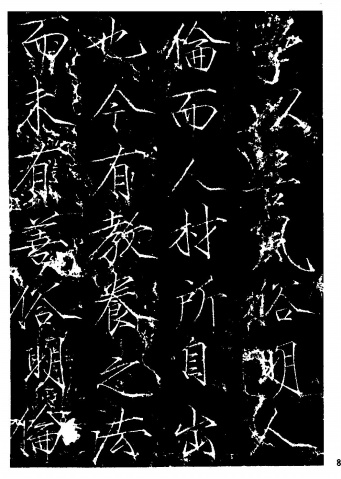 學以善風俗明人
倫而人材所自出
也今有教養之法
而未有善俗明倫
8